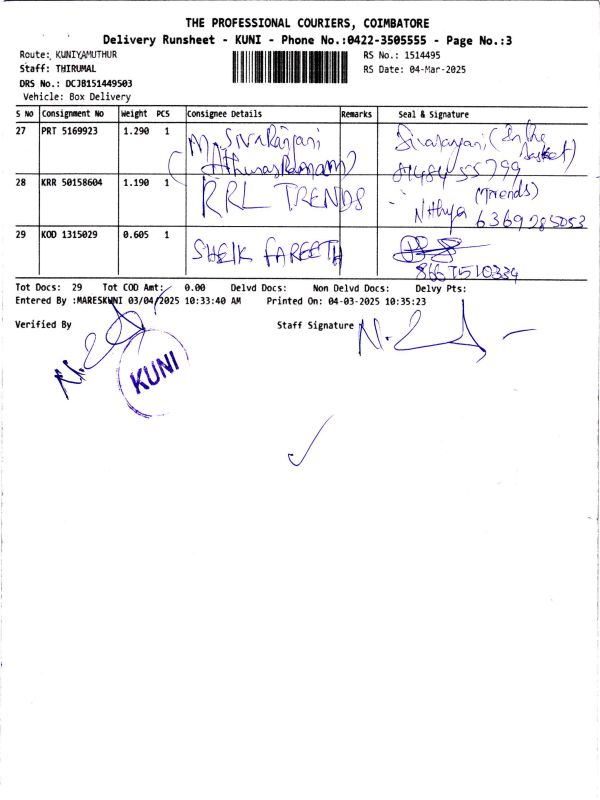 THE PROFESSIONAL COURIERS, COIMBATORE
Delivery Runsheet - KUNI - Phone No.:0422-3505555 - Page No.:3
Route: KUNIYAMUTHUR
RS No.: 1514495
Staff: THIRUMAL
RS Date: 04-Mar-2025
DRS No.: DCJB151449503
Vehicle: Box Delivery
S No Consignment No Weight PCS Consignee Details Remarks Seal & Signature
27 PRT 5169923 1.290 1 M. SivaRanjani
28 KRR 50158604 1.190 1 RRL TRENDS (Trends)
Nithya 6369785053
29 KOD 1315029 0.605 1 SHEIK FAREETH
8667510334
Tot Docs: 29 Tot COD Amt: 0.00 Delvd Docs: Non Delvd Docs: Delvy Pts:
Entered By :MARESKUNI 03/04/2025 10:33:40 AM Printed On: 04-03-2025 10:35:23
Verified By Staff Signature
KUNI